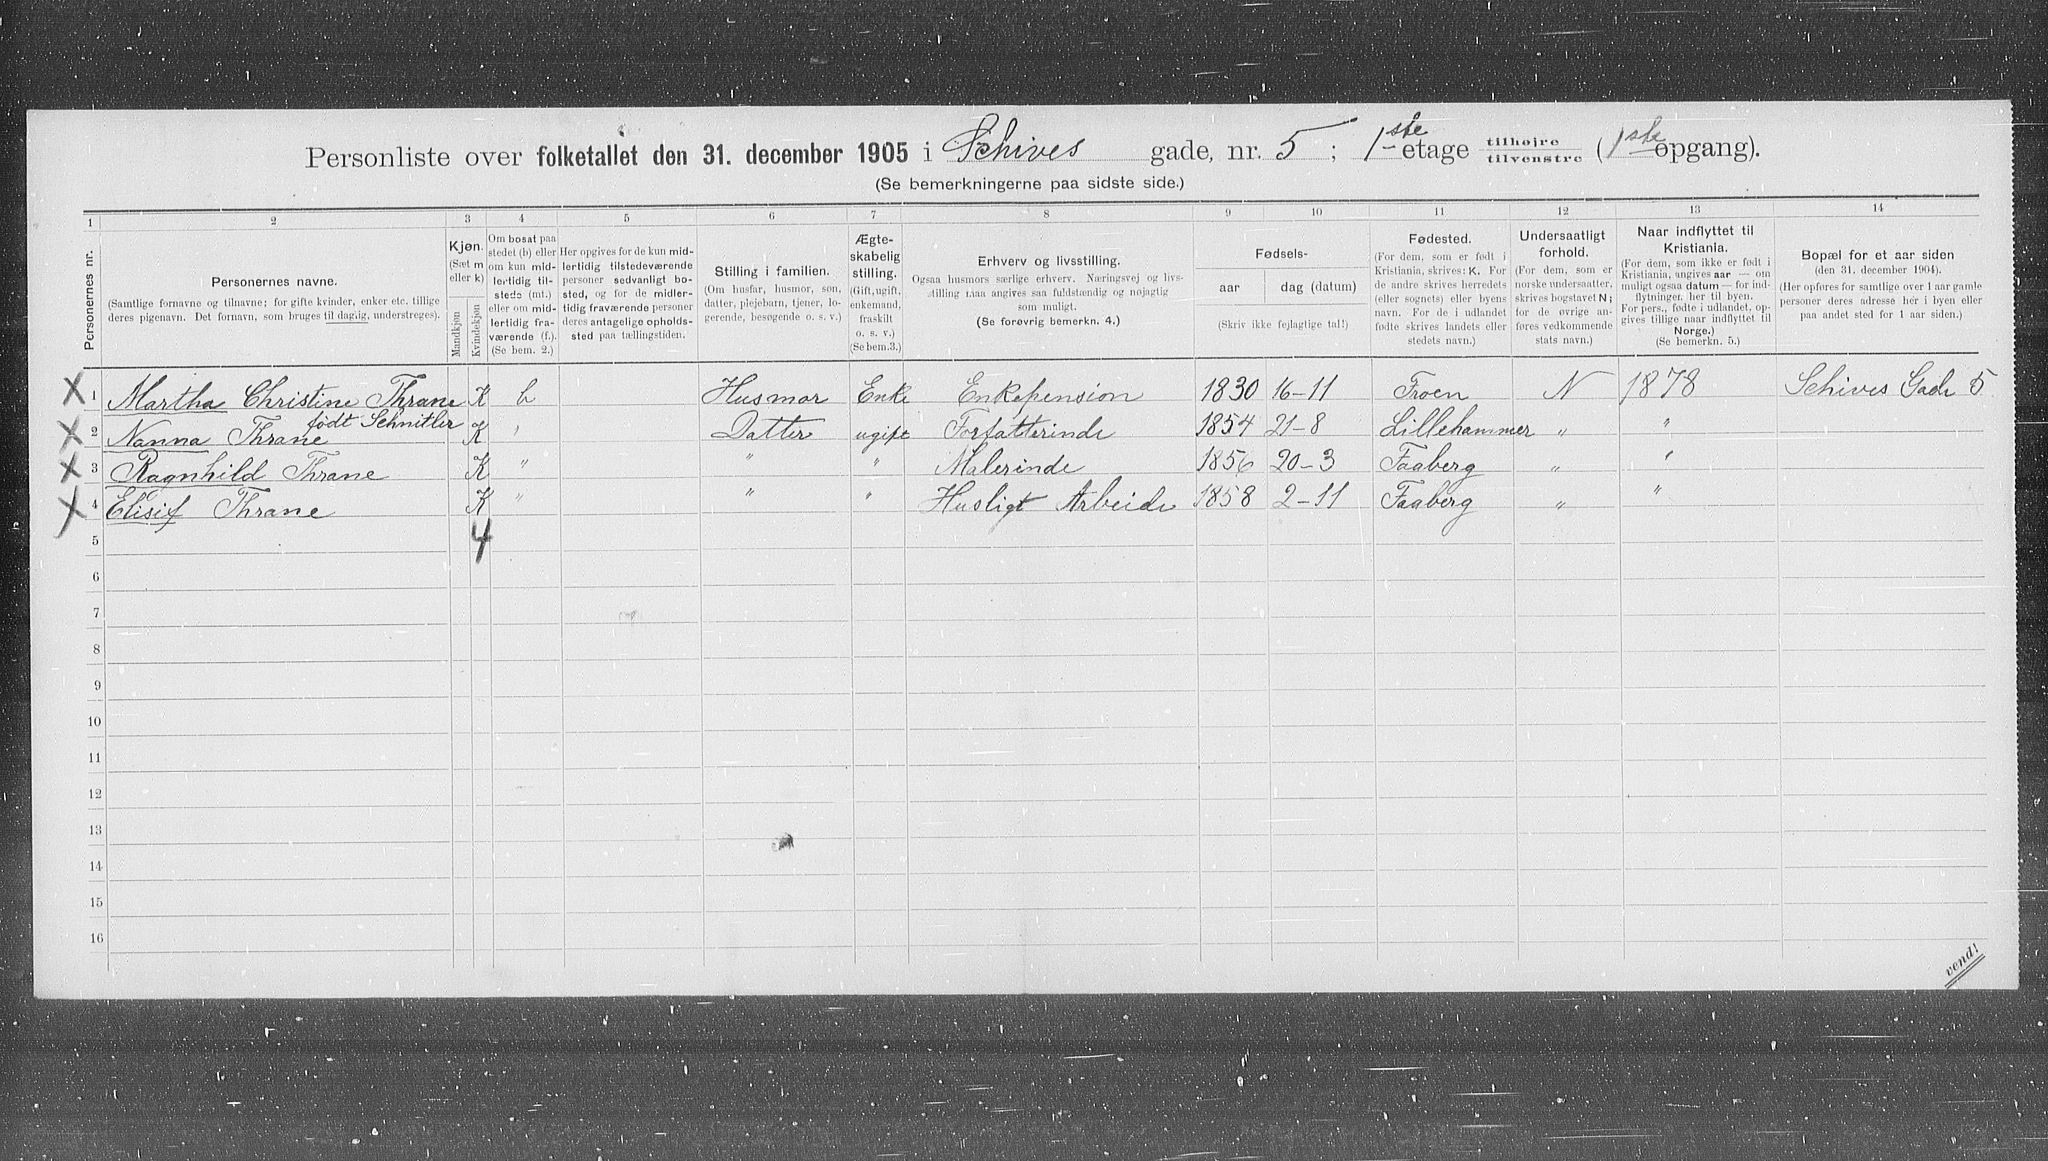 Personliste over folketallet den 31. december 1905 i Schives gade, nr. 5; 1ste etage tilhøjre tilvenstre (1ste opgang).
(Se bemerkningerne paa sidste side.)
1 2 3 4 5 6 7 8 9 10 11 12 13 14
Personernes nr.
Personernes navne.
(Samtlige fornavne og tilnavne; for gifte kvinder, enker etc. tillige
deres pigenavn. Det fornavn, som bruges til daglig, understreges).
Kjøn.
(Sæt m
eller k)
Mandkjøn
Kvindekjøn
Om bosat paa
stedet (b) eller
om kun mid-
lertidig til-
stede (mt.)
eller om mid-
lertidig fra-
værende (f.).
(Se bem. 2.)
Her opgives for de kun mid-
lertidig tilstedeværende
personer sedvanligt bo-
sted, og for de midler-
tidig fraværende personer
deres antagelige opholds-
sted paa tællingstiden.
Stilling i familien.
(Om husfar, husmor, søn,
datter, plejebarn, tjener, lo-
gerende, besøgende o. s. v.)
Ægte-
skabelig
stilling.
(Gift, ugift,
enkemand,
fraskilt
o. s. v.)
(Se bem. 3.)
Erhverv og livsstilling.
Ogsaa husmors særlige erhverv. Næringsvej og livs-
stilling maa angives saa fuldstændig og nøjagtig
som muligt.
(Se forøvrig bemerkn. 4.)
Fødsels-
aar dag (datum)
(Skriv ikke fejlagtige tal!)
Fødested.
(For dem, som er født i
Kristiania, skrives: K. For
de andre skrives herredets
(eller sognets) eller byens
navn. For de i udlandet
fødte skrives landets eller
stedets navn.)
Undersaatligt
forhold.
(For dem, som er
norske undersaatter,
skrives bogstavet N;
for de øvrige an-
føres vedkommende
stats navn.)
Naar indflyttet til
Kristiania.
(For dem, som ikke er født i
Kristiania, angives aar — om
muligt ogsaa datum — for ind-
flytninger her til byen.
For pers., fødte i udlandet, op-
gives tillige naar indflyttet til
Norge.)
(Se bemerkn. 5.)
Bopæl for et aar siden
(den 31. december 1904).
(Her opføres for samtlige over 1 aar gamle
personer deres adresse her i byen eller
paa andet sted for 1 aar siden.)
X 1 Martha Christine Thrane K b Husmor Enke Enkepension 1830 16-11 Troen N 1878 Schives Gade 5
født Schnitler
X 2 Nanna Thrane K " Datter ugift Forfatterinde 1854 21-8 Lillehammer " "
X 3 Ragnhild Thrane K " " " Malerinde 1856 20-3 Faaberg " "
X 4 Elisif Thrane K " " " Husligt Arbeide 1858 2-11 Faaberg " "
5 4
6
7
8
9
10
11
12
13
14
15
16
vend!